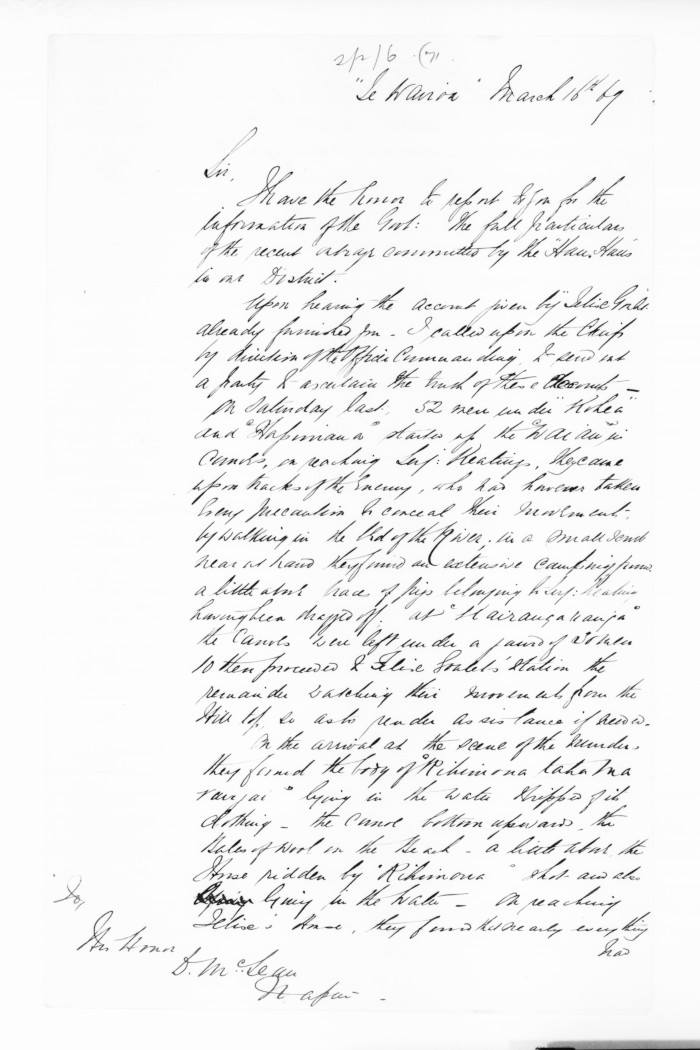 "Te Wairoa" March 16th 69
Sir,
I have the honor to report to you for the
information of the Govt: the full particulars
of the recent outrage committed by the "Hau Haus
in our District.
Upon hearing the account given by Felix
already furnished you - I called upon the Chiefs
by direction of the Officer Commanding, to send out
a party to ascertain the truth of these accounts -
On Saturday last, 52 men under "Kohea"
and "Hapimana" started up the "Waiau" in
Canoes, on reaching Serj: Keatings, they came
upon tracks of the Enemy, who had however taken
every precaution to conceal their movements,
by walking in the bed of the River, in a small
near at hand they found an extensive camping ground
a little above traces of pigs belonging to Serj: Keating
having been dragged off. at
the Canoes were left under a guard of 20 men
10 then proceeded to Station the
remainder watching their movements from the
Hill top, so as to render assistance if needed.
On the arrival at the scene of the murder,
they found the body of
lying in the water stripped of its
clothing - the Canoe bottom upwards, the
Bales of Wool on the Beach - a little above the
Horse ridden by "Rihimona" shot and also
lying in the water - On reaching
House, they found that nearly everything
had
To,
His Honor
D. McLean
Napier -